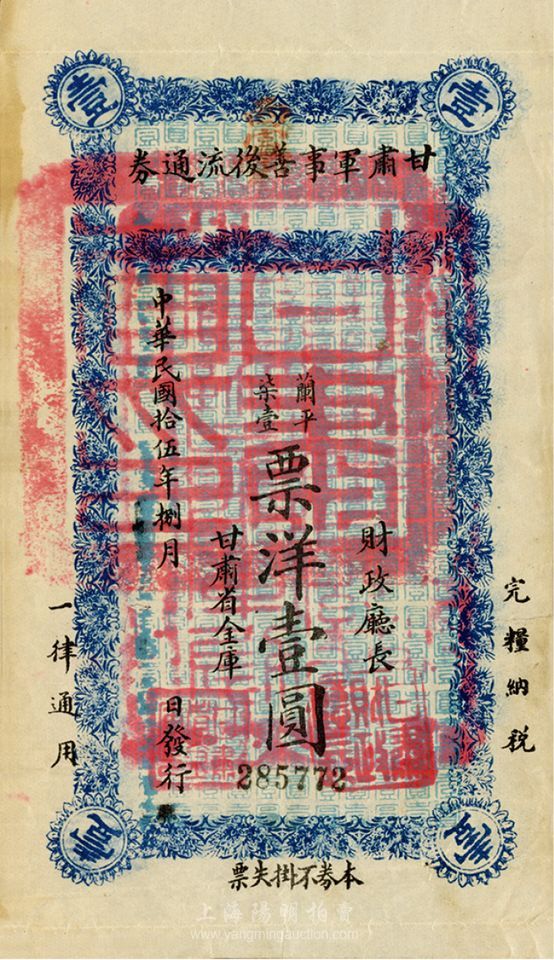 壹 壹
甘肅軍事善後流通券
完糧納稅
財政廳長
蘭平
柒壹
票洋壹圓
甘肅省金庫
中華民國拾伍年捌月
日發行
一律通用
285772
壹 壹
本券不掛失票
上海陽明拍賣
www.yangmingauction.com